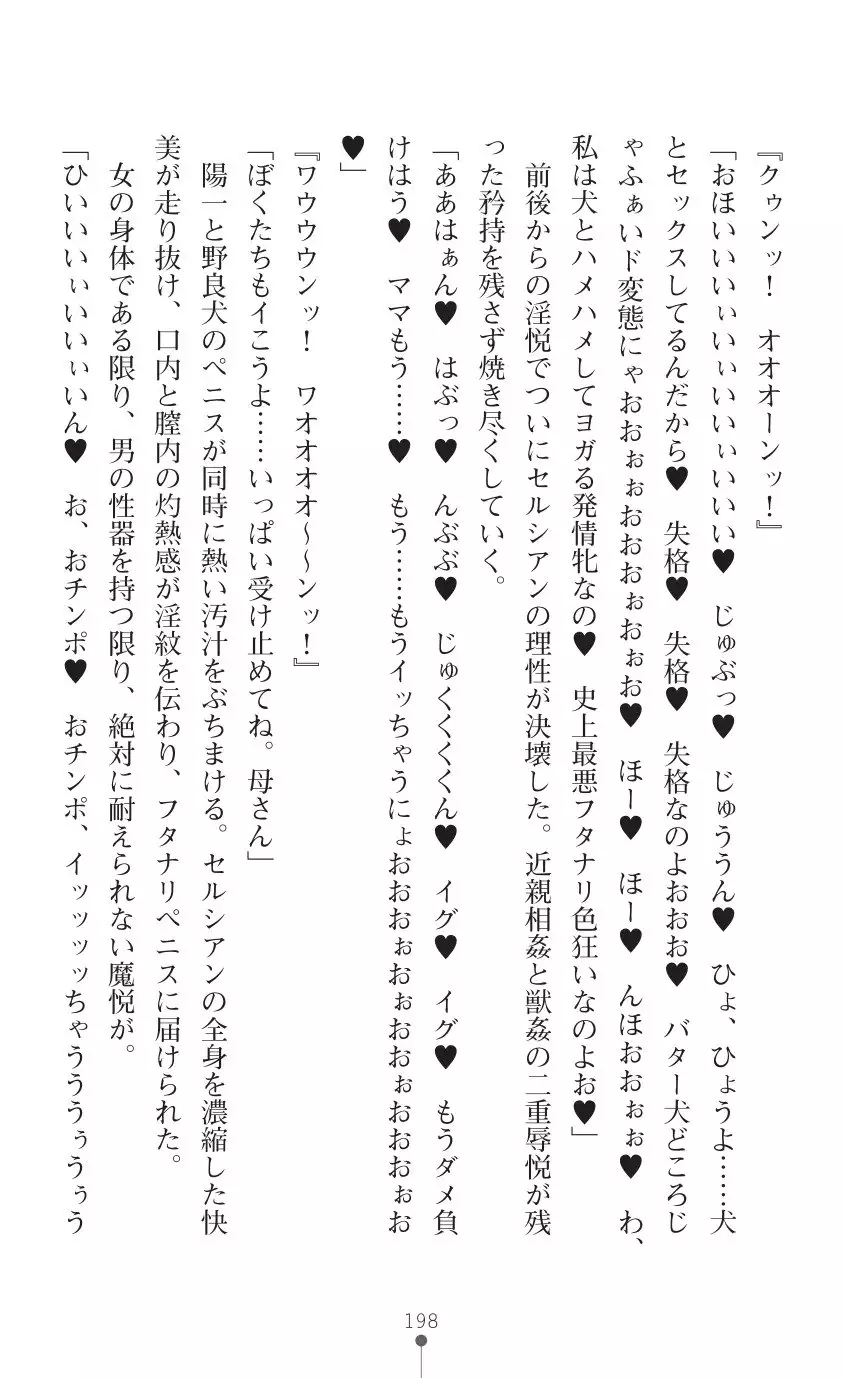 『クゥンッ！　オオオーンッ！』
「おほいいいぃいぃいいいぃいいい♥　じゅぶっ♥　じゅううん♥　ひょ、ひょうよ……犬
とセックスしてるんだから♥　失格♥　失格♥　失格なのよおおお♥　バター犬どころじ
ゃふぁいド変態にゃおおぉぉおおおぉおぉお♥　ほー♥　ほー♥　んほおおぉぉ♥　わ、
私は犬とハメハメしてヨガる発情牝なの♥　史上最悪フタナリ色狂いなのよお♥」
前後からの淫悦でついにセルシアンの理性が決壊した。近親相姦と獣姦の二重辱悦が残
った矜持を残さず焼き尽くしていく。
「ああはぁん♥　はぶっ♥　んぶぶ♥　じゅくくくくん♥　イグ♥　イグ♥　もうダメ負
けはう♥　ママもう……♥　もう……もうイッちゃうにょおおおぉおぉおおぉおおおぉお
♥」
『ワウウウンッ！　ワオオオオ～～ンッ！』
「ぼくたちもイこうよ……いっぱい受け止めてね。母さん」
陽一と野良犬のペニスが同時に熱い汚汁をぶちまける。セルシアンの全身を濃縮した快
美が走り抜け、口内と膣内の灼熱感が淫紋を伝わり、フタナリペニスに届けられた。
女の身体である限り、男の性器を持つ限り、絶対に耐えられない魔悦が。
「ひいいいぃいいぃいん♥　お、おチンポ♥　おチンポ、イッッッッちゃうううぅうぅう
198